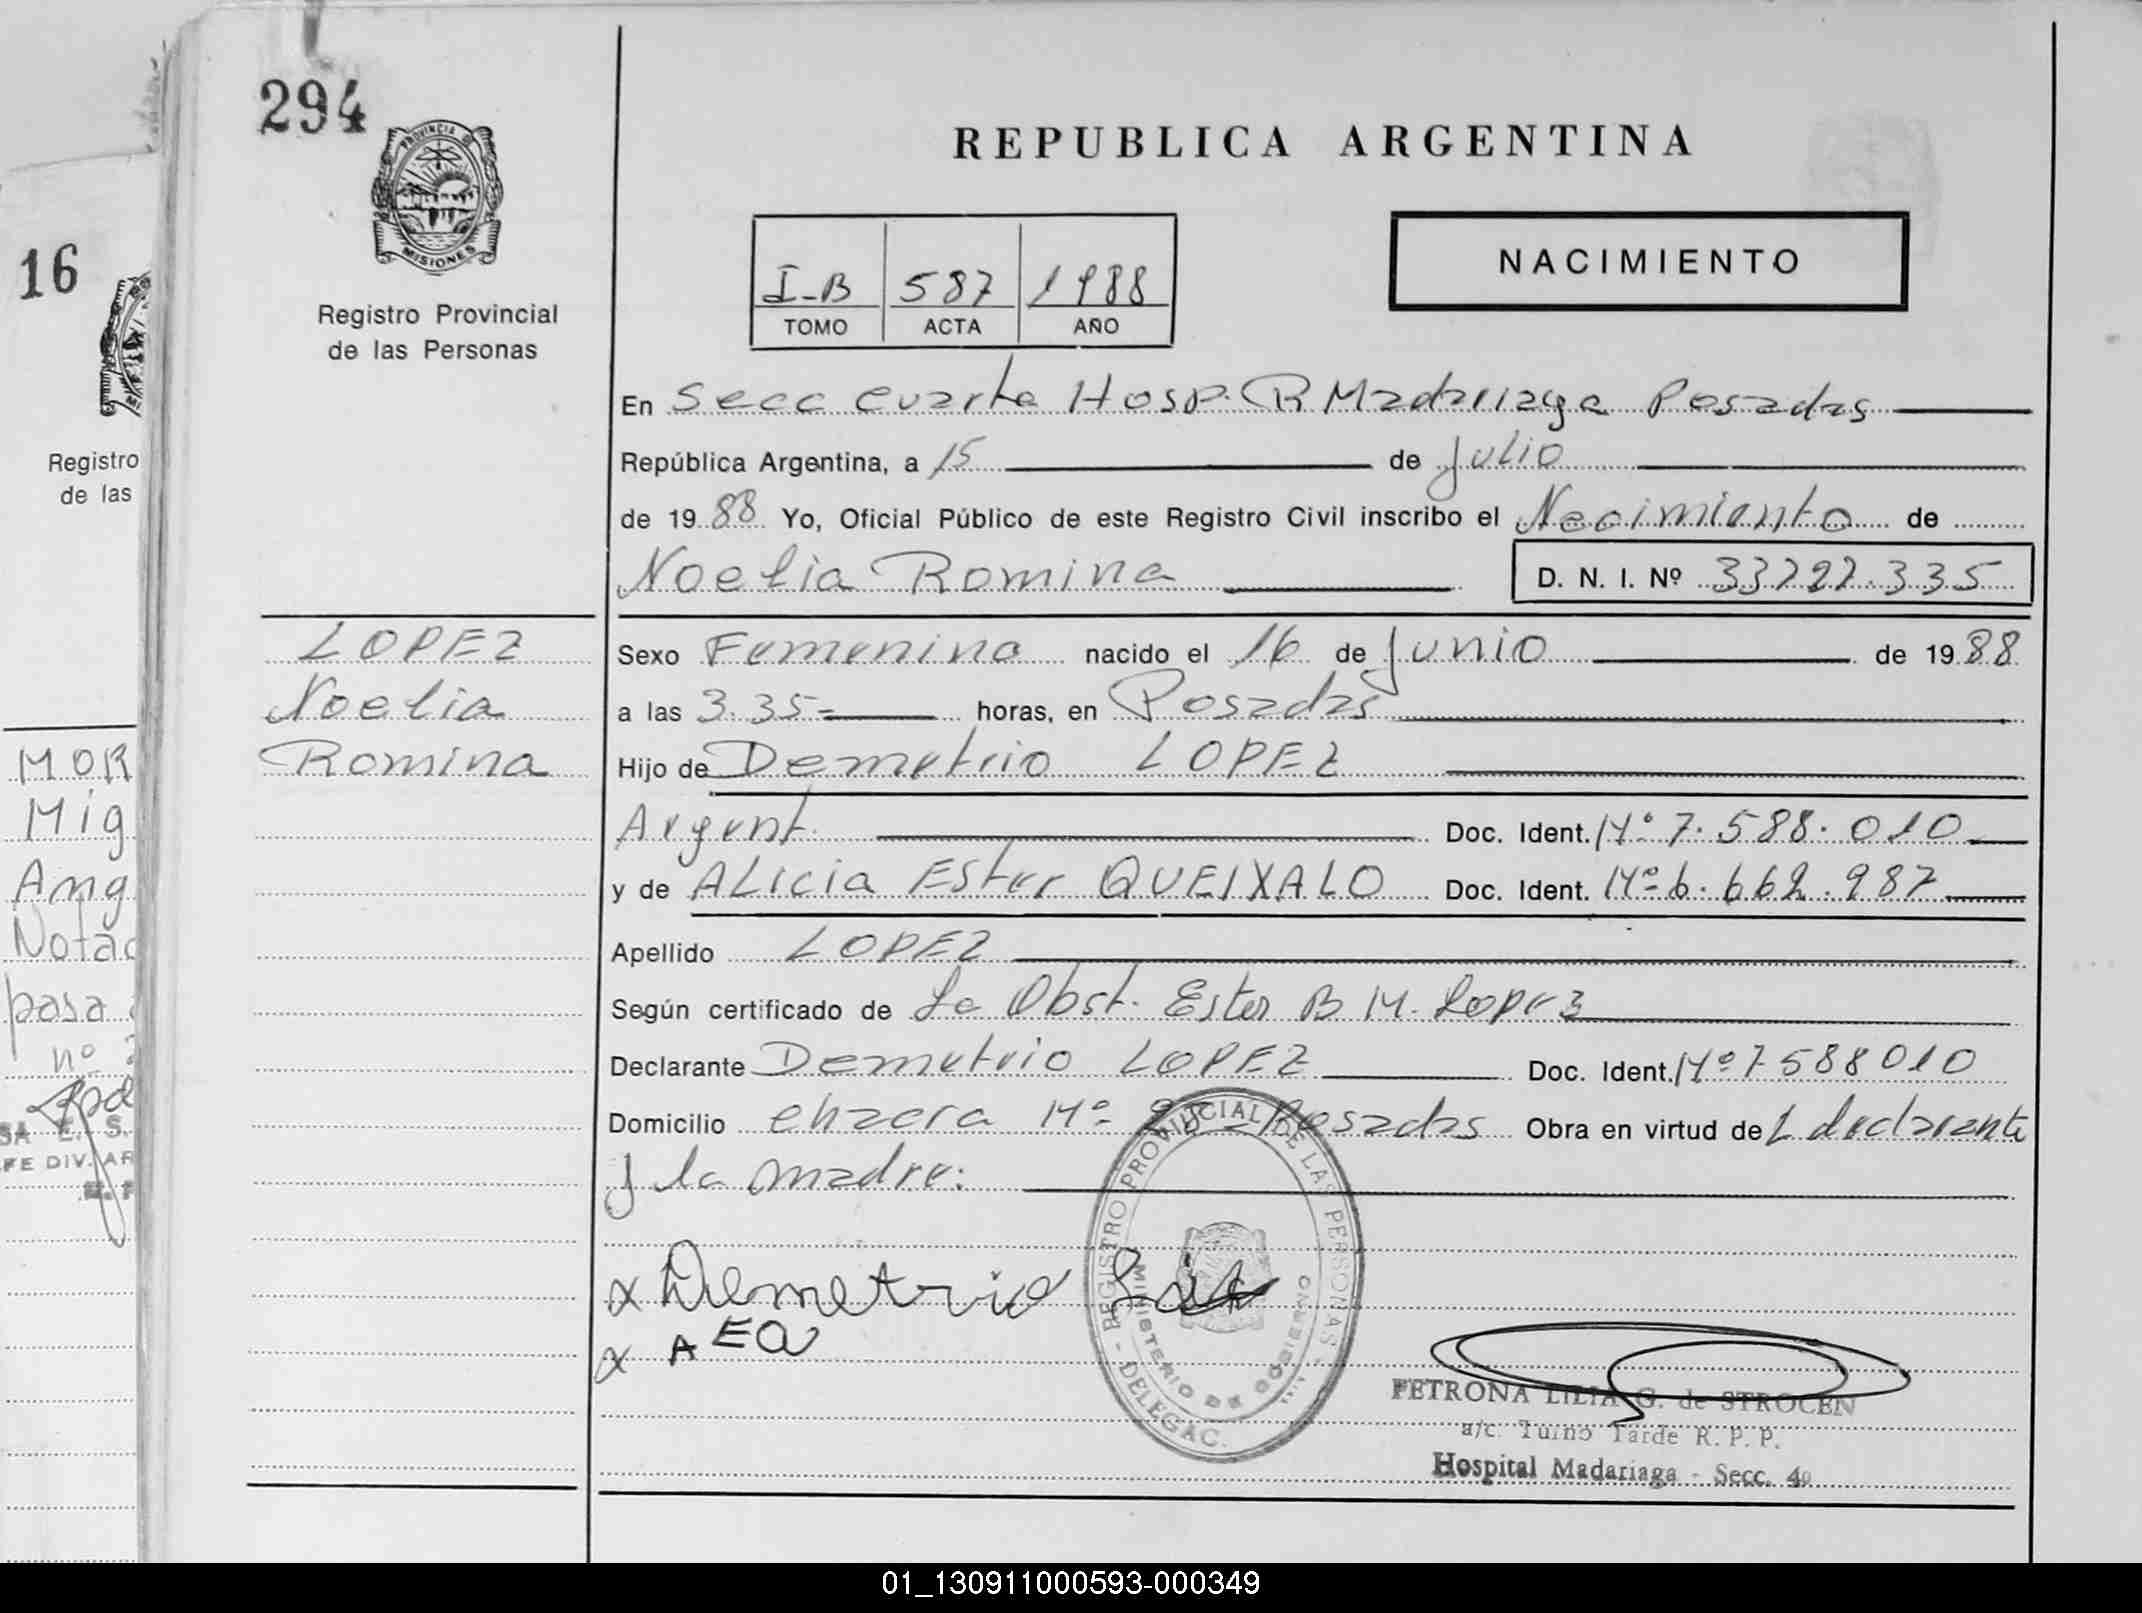 294
PROVINCIA DE
MISIONES
Registro Provincial
de las Personas
REPUBLICA ARGENTINA
I-B 587 1988
TOMO ACTA AÑO
NACIMIENTO
En Secc Cuarta Hosp. R Madariaga Posadas
República Argentina, a 15 de Julio
de 1988 Yo, Oficial Público de este Registro Civil inscribo el Nacimiento de
Noelia Romina
D. N. I. Nº
LOPEZ
Noelia
Romina
Sexo Femenino nacido el 16 de Junio de 1988
a las 3.35- horas, en Posadas
Hijo de Demetrio LOPEZ
Argent. Doc. Ident. Nº 7.588.010
y de ALicia Ester QUEIXALO Doc. Ident. Nº 6.662.987
Apellido LOPEZ
Según certificado de La Obst. Ester B M. Lopez
Declarante Demetrio LOPEZ Doc. Ident. Nº 7588010
Domicilio chacra Nº Posadas Obra en virtud de L declarante
y la madre:
x Demetrio
x AEQ
REGISTRO PROVINCIAL DE LAS PERSONAS - DELEGAC.
MINISTERIO DE GOBIERNO
PETRONA LILIA G. de STROCEN
a/c. Turno Tarde R. P. P.
Hospital Madariaga - Secc. 4º
16
Registro
de las
MOR
Mig
Ang
Notac
pasa
nº
SA E. S.
FE DIV. AR
01_130911000593-000349